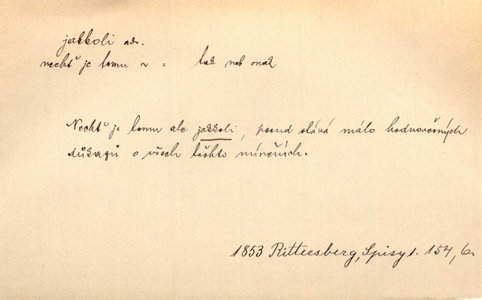 jakkoli adv.
nechť je tomu . tak neb onak
Nechť je tomu ale jakkoli, posud stává málo hodnověrných
důkazů o všech těchto míněních.
1853 Rittersberg, Spisy 1. 154, 6.